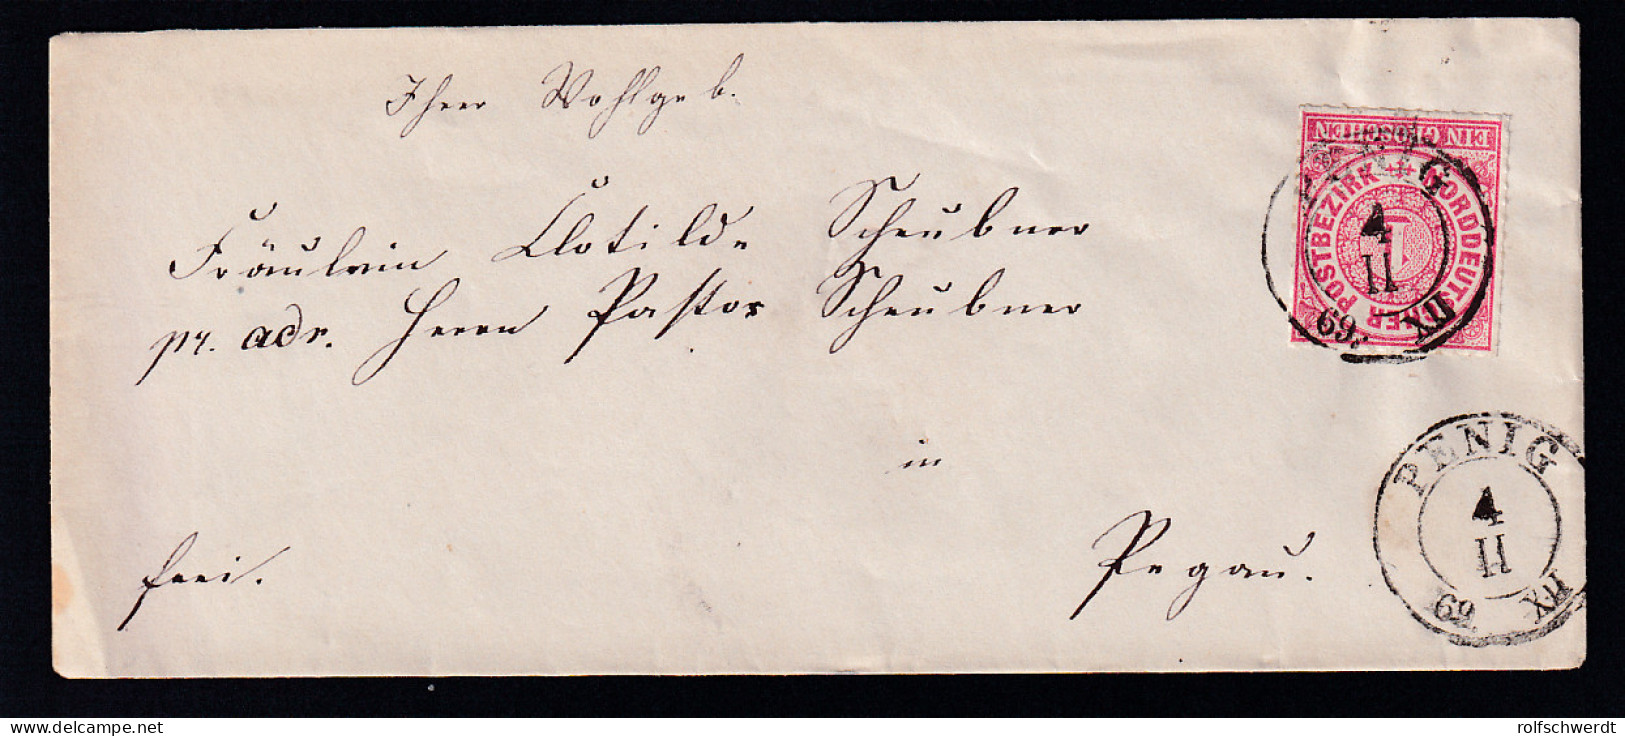 Ihrer Wohlgeb.
Fräulein Clotilde Scheubner
pr. adr. Herrn Pastor Scheubner
in
Pegau.
frei.
EIN GROSCHEN
NORDDEUTSCHER POSTBEZIRK
1
PENIG
4
II
69. XII
PENIG
4
II
69. XII
www.delcampe.net
rolfschwerdt